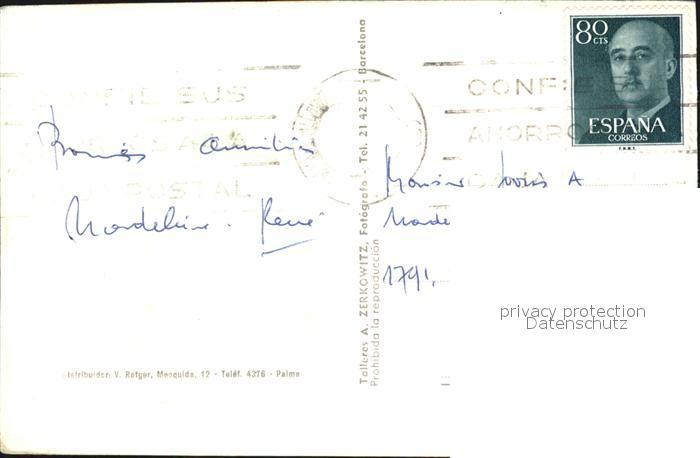 80
CTS
ESPAÑA
CORREOS
F.N.M.T.
CONFIE SUS
POSTAL
CONFIE
AHORRO
Bonnes amitiés
Madeleine - René
Monsieur Louis A
Made
1791.
privacy protection
Datenschutz
Talleres A. ZERKOWITZ, Fotógrafo - Tel. 21 42 55 - Barcelona
Prohibida la reproducción
Distribuidor: V. Rotger, Mesquida, 12 - Teléf. 4376 - Palma